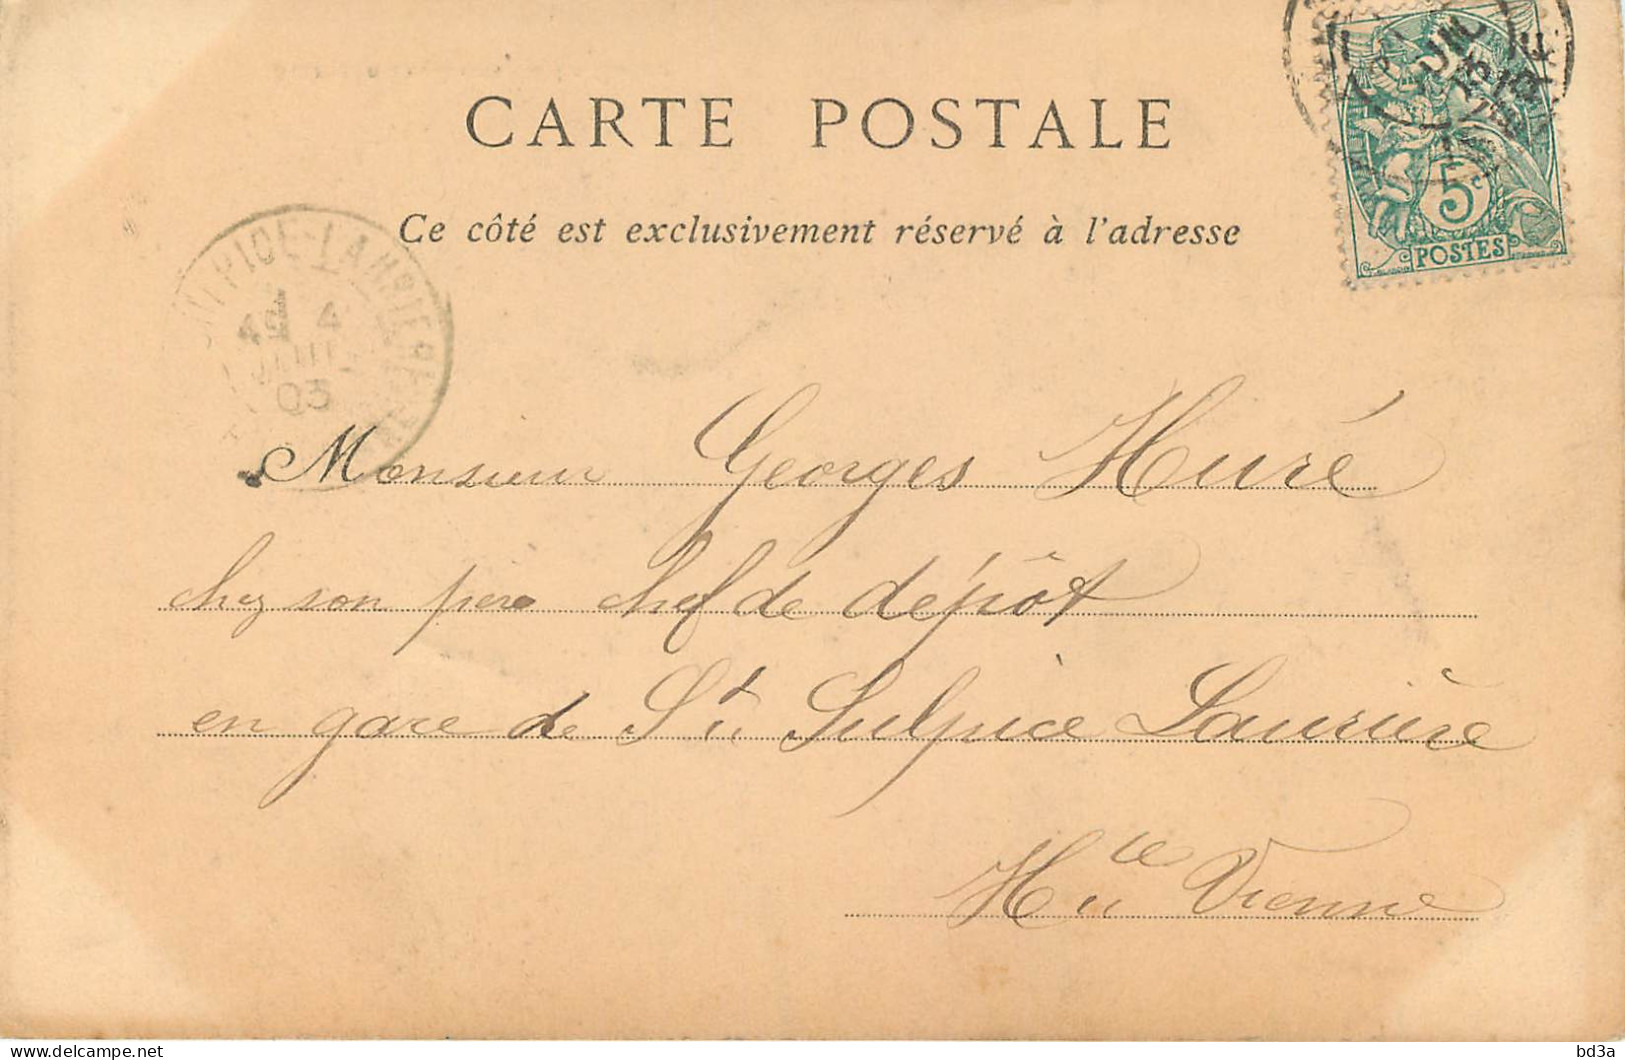 CARTE POSTALE
Ce côté est exclusivement réservé à l'adresse
5c
POSTES
4
JUIL
03
Monsieur Georges Huré
chez son père chef de dépôt
en gare de St Sulpice Laurière
Hte Vienne
bd3a